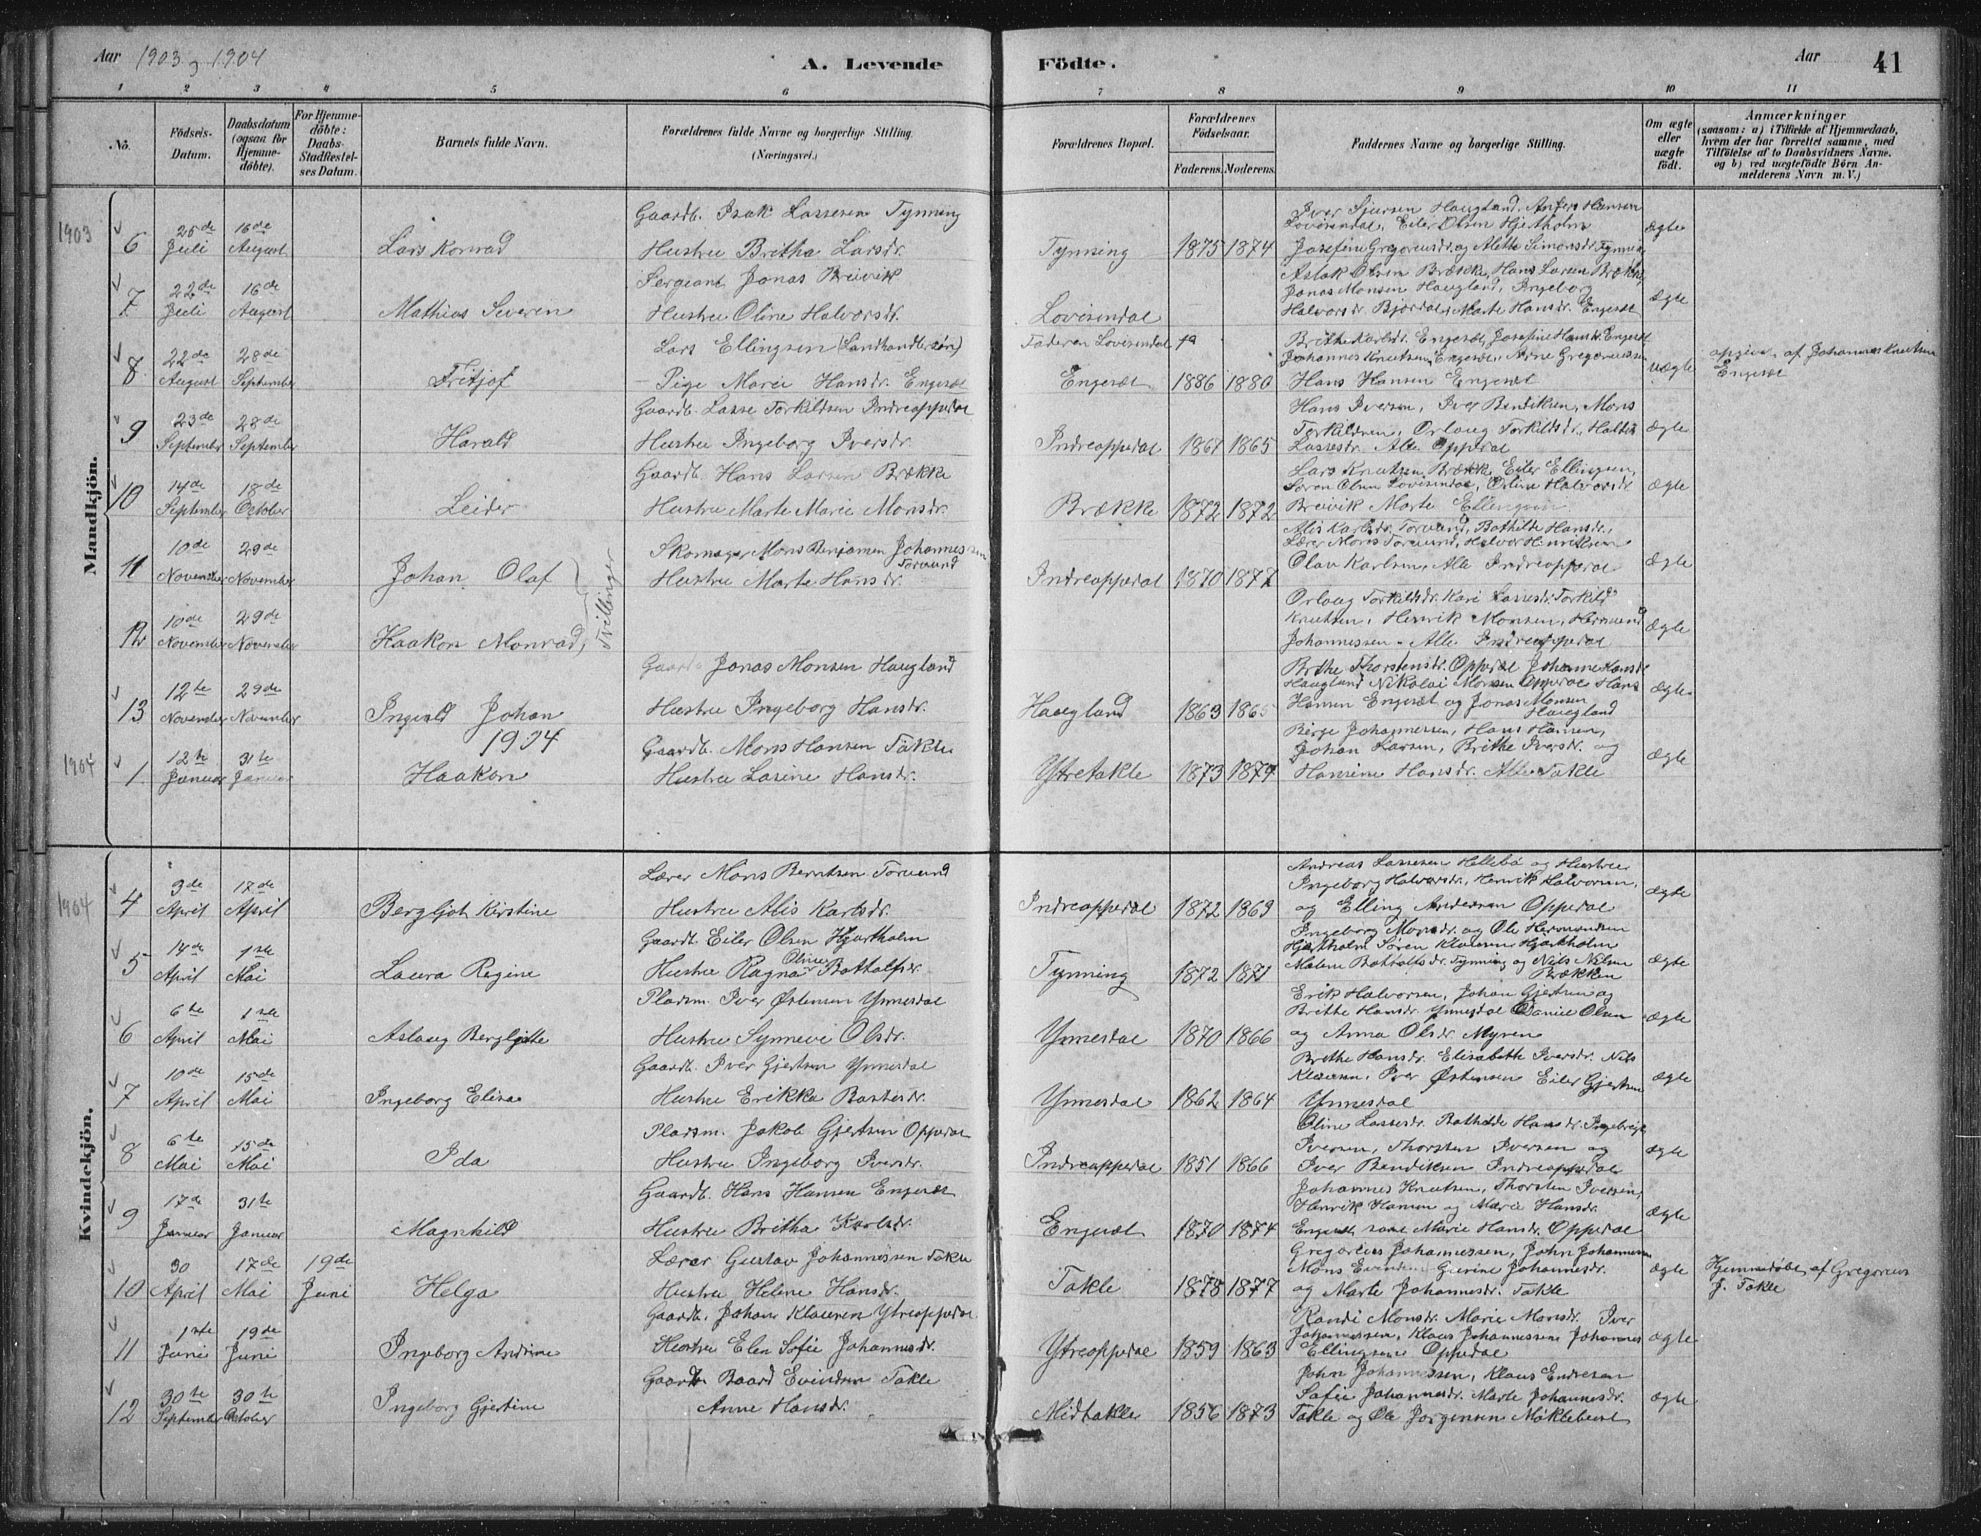 Aar 1903 og 1904
A. Levende Födte.
Aar 41
1 2 3 4 5 6 7 8 9 10 11
No.
Födsels-Datum.
Daabsdatum (ogsaa for Hjemme-döbte).
For Hjemme-döbte: Daabs-Stadfæstel-ses Datum.
Barnets fulde Navn.
Forældrenes fulde Navne og borgerlige Stilling. (Næringsvei.)
Forældrenes Bopæl.
Forældrenes Födselsaar.
Faderens. Moderens.
Faddernes Navne og borgerlige Stilling.
Om ægte eller uægte födt.
Anmærkninger
(saasom: a) i Tilfælde af Hjemmedaab, hvem der har forrettet samme, med Tilföielse af to Daabsvidners Navne. og b) ved uægtefödte Börn An-melderens Navn m. V.)
Mandkjön.
1903
6 25de Juli 16de August Lars Konrad
Gaardb. Isak Lassesen Tynning
Hustru Britha Larsdr.
Tynning 1875 1874
Iver Sjursen Haugland, Anfers Hansen
Lovisendal, Eiler Olsen Hjertholm
Josefine Gregoriusdr. og Alette Simonsdr. Tynning
ægte
7 22de Juli 16de August Mathias Severin
Sergeant Jonas Breivik
Hustru Oline Halvorsdr.
Lovisendal
Aslak Olsen Brække, Hans Larsen Brække
Jonas Monsen Haugland, Ingeborg
Halvorsdr. Bjordal, Marte Hansdr. Engesæt
ægte
8 22de August 28de September Fritjof
Lars Ellingsen (Landhandlersön)
Pige Marie Hansdr. Engesæt
Faderen Lovisendal
Engesæt 1886 1880
Brithe Karlsdr. Engesæt, Josefine Hansdr. Engesæt
Johannes Knutsen Engesæt, Arne Gregoriussen
Hans Hansen Engesæt
uægte
opgivet af Johannes Knutsen
Engesæt
9 23de September 28de September Harald
Gaardb. Lasse Torkildsen Indreoppedal
Hustru Ingeborg Iversdr.
Indreoppedal 1861 1865
Hans Iversen, Iver Bendiksen, Mons
Torkildsen, Orlaug Torkildsdr.,
Lassesdr. Alle Oppedal
ægte
10 14de September 18de October Leider
Gaardb. Hans Larsen Brække
Hustru Marte Marie Monsdr.
Brække 1872 1872
Lars Knutsen Brække, Eiler Ellingsen,
Sören Olsen Lovisendal, Oline Halvorsdr.
Breivik Marte Ellingsen
ægte
11 10de November 29de November Johan Olaf
Tvillinger
Skomager Mons Benjamin Johannessen
Torvund
Hustru Marte Hansdr.
Indreoppedal 1870 1877
Alis Karlsdr. Torvund, Bothilde Hansdr.,
Lærer Mons Torvund, Halvor Henriksen
Olav Karlsen, Alle Indreoppedal
ægte
12 10de November 29de November Haakon Monrad
Orlaug Torkildsdr. Kari Lassesdr. Torkild
Knutsen, Henrik Monsen, Hermund
Johannessen. Alle Indreoppedal
ægte
13 12te November 29de November Ingvald Johan
Gaardb. Jonas Monsen Haugland
Hustru Ingeborg Hansdr.
Haugland 1863 1865
Brithe Thorstensdr. Oppedal Johanne Hansdr.
Haugland Nikolai Monsen Oppedal Hans
Hansen Engesæt og Jonas Monsen
Haugland
ægte
1904
1904
1 12te Januar 31te Januar Haakon
Gaardb. Mons Hansen Takle
Hustru Lasine Hansdr.
Ytretakle 1873 1879
Börge Johannessen, Hans Hansen,
Johan Larsen, Brithe Iversdr. og
Hansine Hansdr. Alle Takle
ægte
Kvindekjön.
1904
4 3de April 17de April Bergljot Kirstine
Lærer Mons Berntsen Torvund
Hustru Alis Karlsdr.
Indreoppedal 1872 1869
Andreas Lassesen Hellebö og Hustru
Ingeborg Halvorsdr., Henrik Halvorsen,
og Elling Andersen Oppedal
ægte
5 14de April 1ste Mai Laura Regine
Gaardb. Eiler Olsen Hjartholm
Oline
Hustru Ragna Botholfsdr.
Tynning 1872 1871
Ingeborg Monsdr. og Ole Hermundsen
Hjertholm Sören Klausen Hjartholm
Malene Botholfsdr. Tynning og Nils Nilsen
Brækken
ægte
6 6te April 1ste Mai Aslaug Bergljotte
Pladsm. Iver Östensen Ynnesdal
Hustru Synneve Olsdr.
Ynnesdal 1870 1866
Erik Halvorsen, Johan Gjertsen og
Brithe Hansdr. Ynnesdal Daniel Olsen
og Anna Olsdr. Myren
ægte
7 10de April 15de Mai Ingeborg Elisa
Gaardb. Iver Gjertsen Ynnesdal
Hustru Erikka Bastesdr.
Ynnesdal 1862 1864
Brithe Hansdr. Elisabeth Iversdr. Nils
Klausen, Iver Östensen Eiler Gjertsen
Ynnesdal
ægte
8 6te Mai 15de Mai Ida
Pladsm. Jakob Gjertsen Oppedal
Hustru Ingeborg Iversdr.
Indreoppedal 1851 1866
Oline Lassesdr. Bothilde Hansdr. Ingebrigt
Iversen, Thorsten Iversen og
Iver Bendiksen Indreoppedal
ægte
9 17de Januar 31te Januar Magnhild
Gaardb. Hans Hansen Engesæt
Hustru Britha Karlsdr.
Engesæt 1870 1874
Johannes Knutsen, Thorsten Iversen,
Henrik Hansen og Marie Hansdr.
Engesæt samt Marie Hansdr. Oppedal
ægte
10 30 April 17de Mai 19de Juni Helga
Lærer Gustav Johannessen Takle
Hustru Helene Hansdr.
Takle 1878 1877
Gregorius Johannessen, John Johannessen
Mons Evindsen Gurine Johannesdr.
og Marte Johannesdr. Takle
ægte
Hjemmedöbt af Gregorius
J. Takle
11 1ste Juni 19de Juni Ingeborg Andrine
Gaardb. Johan Klausen Ytreoppedal
Hustru Elen Sofie Johannesdr.
Ytreoppedal 1859 1863
Randi Monsdr. Marie Monsdr. Iver
Johannessen, Klaus Johannessen Johannes
Ellingsen Oppedal
ægte
12 30te September 30te October Ingeborg Gjertine
Gaardb. Baard Evindsen Takle
Anne Hansdr.
Midtakle 1856 1873
John Johannessen, Klaus Endresen
Sofie Johannesdr. Marte Johannesdr.
Takle og Ole Jorgensen Möklebust
ægte